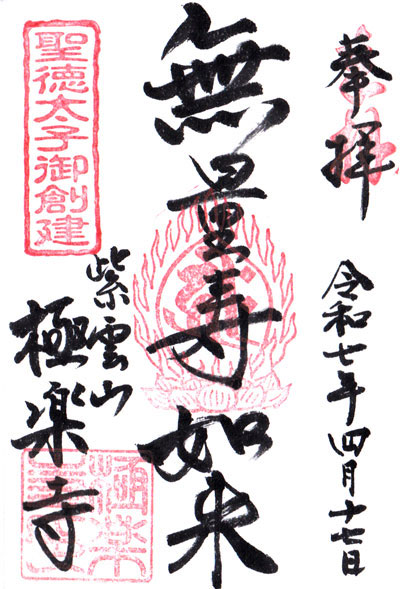 奉拝
令和七年四月十七日
無量寿如来
紫雲山
極楽寺
聖徳太子御創建